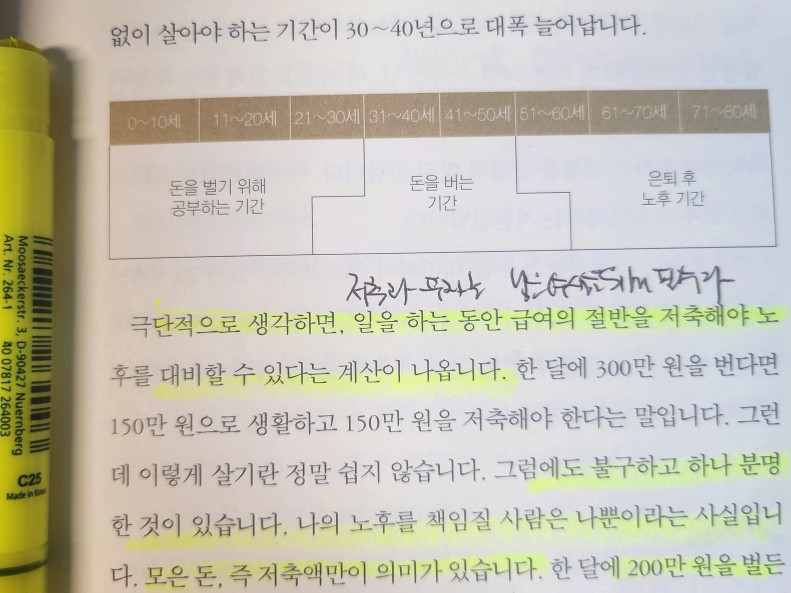 없이 살아야 하는 기간이 30~40년으로 대폭 늘어납니다.
0~10세 11~20세 21~30세 31~40세 41~50세 51~60세 61~70세 71~80세
돈을 벌기 위해
공부하는 기간
돈을 버는
기간
은퇴 후
노후 기간
저축과 투자는
극단적으로 생각하면, 일을 하는 동안 급여의 절반을 저축해야 노
후를 대비할 수 있다는 계산이 나옵니다. 한 달에 300만 원을 번다면
150만 원으로 생활하고 150만 원을 저축해야 한다는 말입니다. 그런
데 이렇게 살기란 정말 쉽지 않습니다. 그럼에도 불구하고 하나 분명
한 것이 있습니다. 나의 노후를 책임질 사람은 나뿐이라는 사실입니
다. 모은 돈, 즉 저축액만이 의미가 있습니다. 한 달에 200만 원을 벌든
Moosaeckerstr. 3, D-90427 Nuernberg
Art. Nr. 264-1
40 07817 264003
C25
Made in Korea